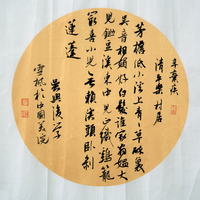 辛棄疾
清平樂 村居
茅檐低小溪上青々草醉裏
吴音相媚好白髮誰家翁媪大
兒鋤豆溪東中兒正織雞籠
最喜小兒無賴溪頭卧剝
蓮蓬
吴興後學
於中國美院